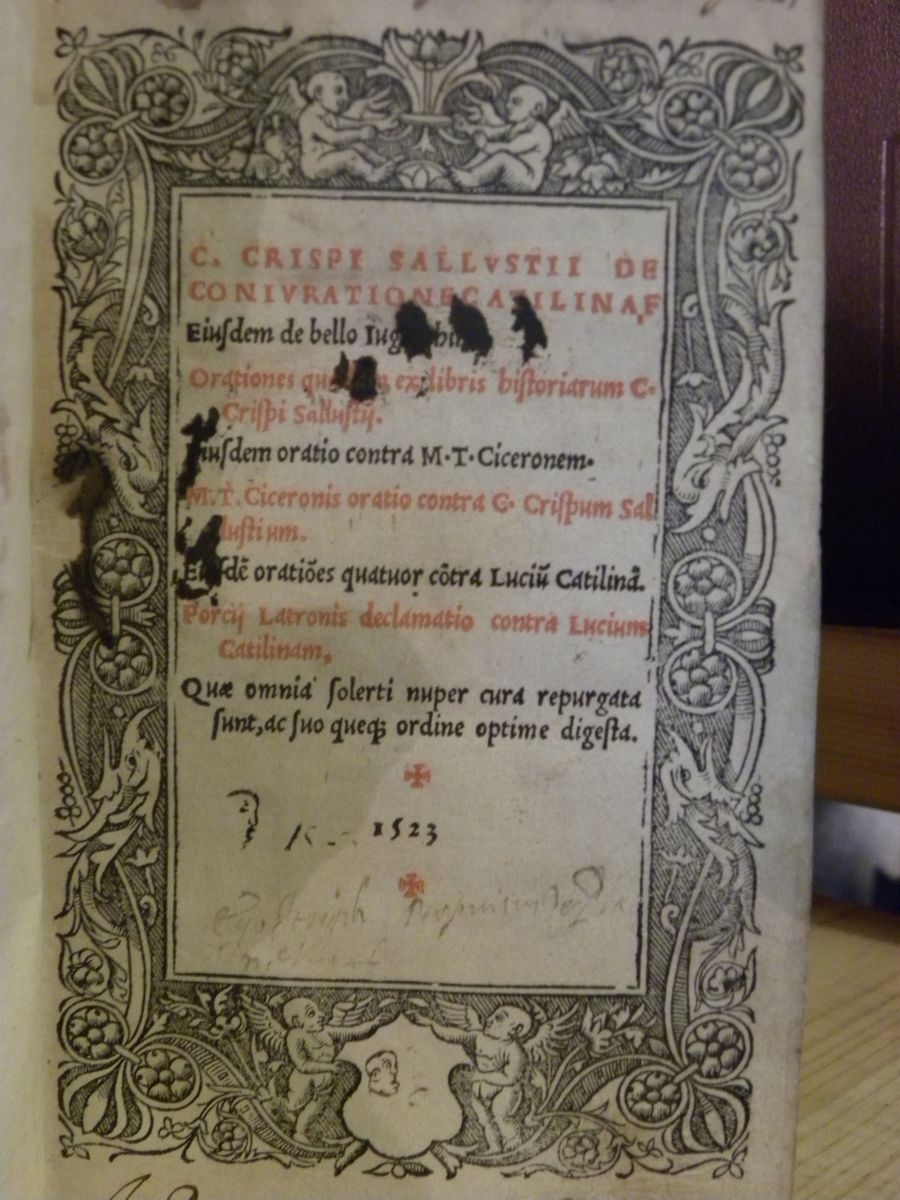 C. CRISPI SALLVSTII DE
CONIVRATIONE CATILINAE
Eiuſdem de bello Iug
Orationes ex libris hiſtoriarum C.
Criſpi Salluſtij.
Eiuſdem oratio contra M.T.Ciceronem.
M.T.Ciceronis oratio contra C. Criſpum Sal
luſtium.
Eiuſdē oratiōes quatuor cōtra Luciū Catilinā.
Porcij Latronis declamatio contra Lucium
Catilinam,
Quæ omnia ſolerti nuper cura repurgata
ſunt,ac ſuo queqȝ ordine optime digeſta.
1523